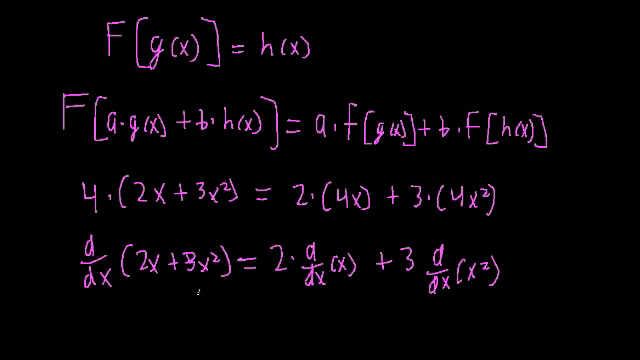 F[g(x)] = h(x)
F[a·g(x) + b·h(x)] = a·F[g(x)] + b·F[h(x)]
4·(2x + 3x²) = 2·(4x) + 3·(4x²)
d/dx (2x + 3x²) = 2·d/dx(x) + 3 d/dx(x²)